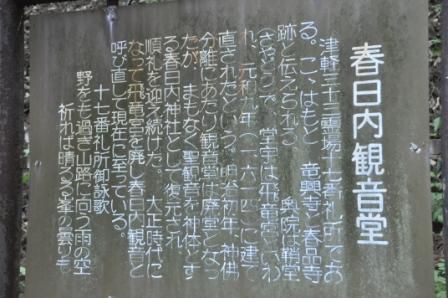 春日内観音堂
津軽三十三霊場十七番札所であ
る。こゝはもと、竜興寺と春品寺
跡と伝えられる。奥院は鞘堂
さやどうで、堂宇は飛竜宮といわ
れ、元和九年(一六二四)に建て
直されたという。明治初年、神佛
分離にあたり観音堂は廃堂となっ
たが、まもなく聖観音を神体とす
る春日内神社として復元され
順礼を迎え続けた。大正時代に
なって飛竜宮を廃し春日内観音と
呼び直して現在に至っている。
十七番札所御詠歌
野をも過ぎ山路に向う雨の空
祈れば晴るゝ峯の曇りも